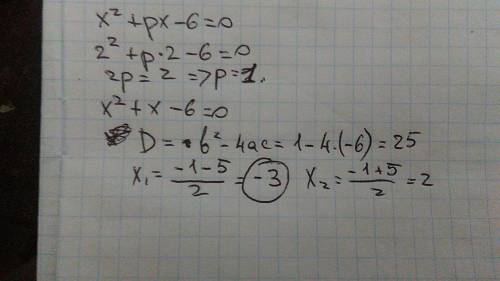 x² + px - 6 = 0
2² + p·2 - 6 = 0
2p = 2 => p = 1.
x² + x - 6 = 0
D = b² - 4ac = 1 - 4·(-6) = 25
x₁ = (-1-5)/2 = -3 x₂ = (-1+5)/2 = 2